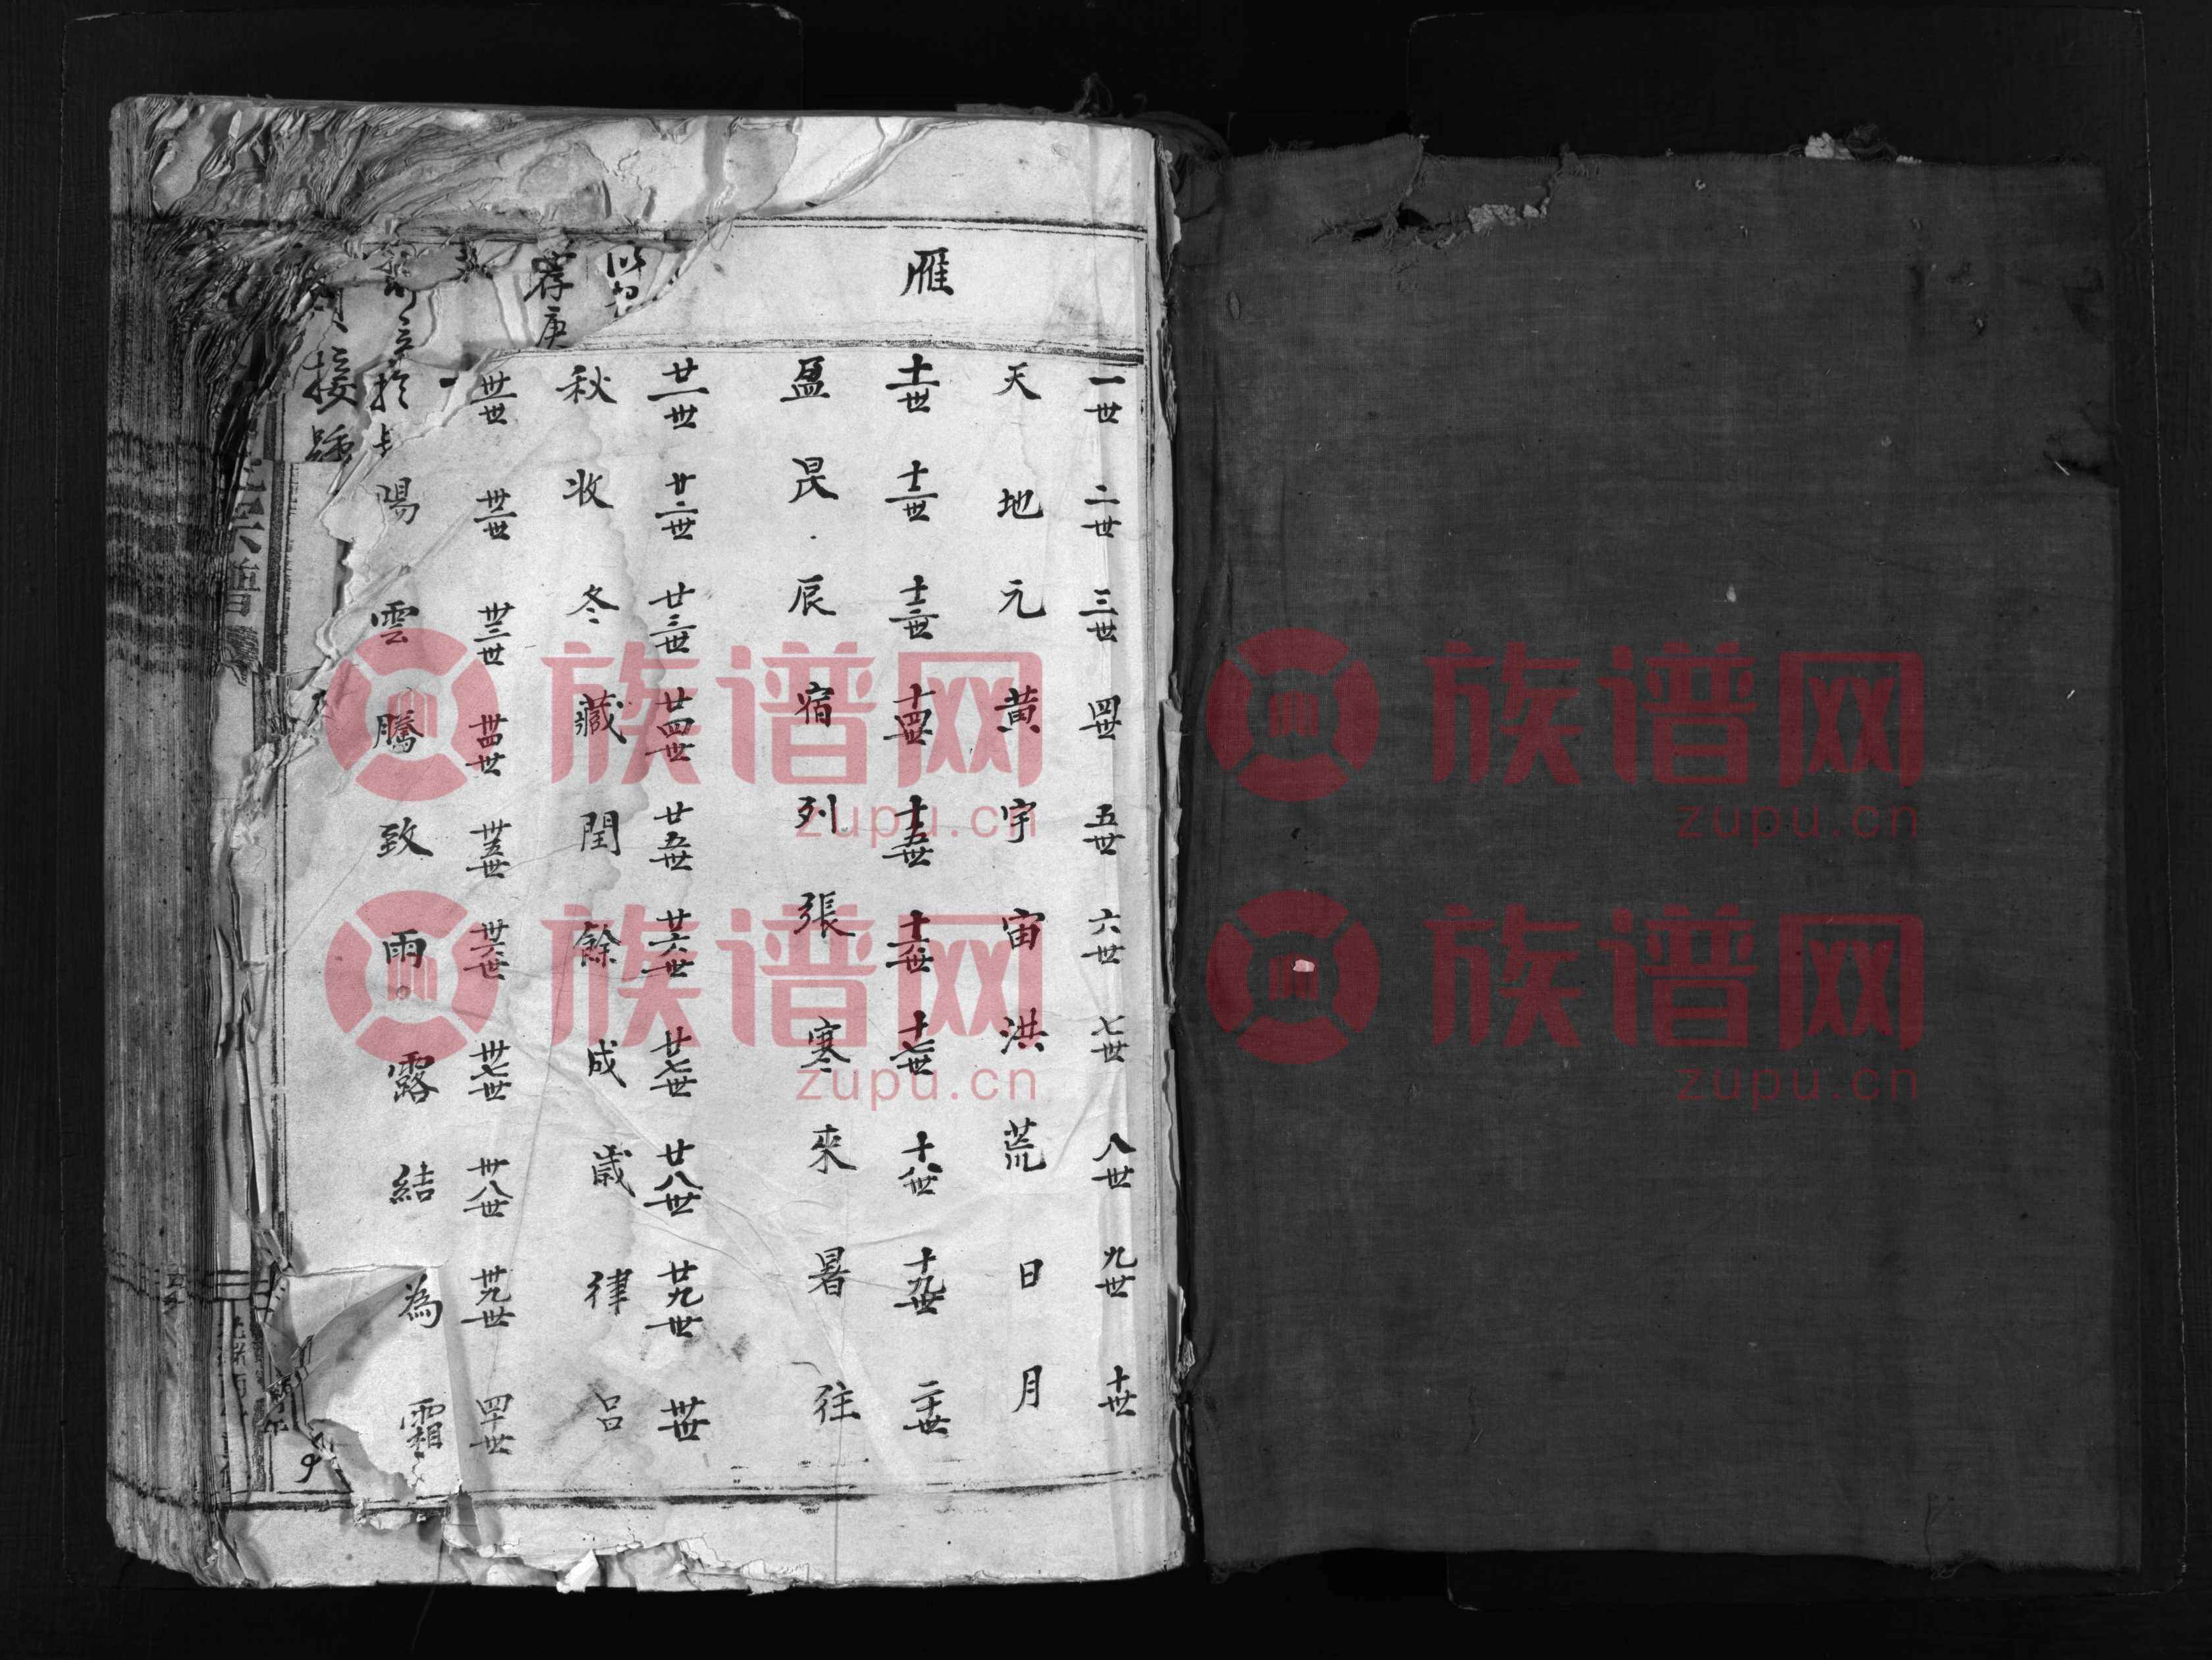 雁
一世 二世 三世 四世 五世 六世 七世 八世 九世 十世
天 地 元 黄 宇 宙 洪 荒 日 月
十一世 十二世 十三世 十四世 十五世 十六世 十七世 十八世 十九世 二十世
盈 昃 辰 宿 列 張 寒 來 暑 往
廿一世 廿二世 廿三世 廿四世 廿五世 廿六世 廿七世 廿八世 廿九世 卅世
秋 收 冬 藏 閏 餘 成 歲 律 呂
卅一世 卅二世 卅三世 卅四世 卅五世 卅六世 卅七世 卅八世 卅九世 四十世
陽 雲 騰 致 雨 露 結 為 霜
庚
接
宗譜
族谱网
zupu.cn
族谱网
zupu.cn
族谱网
zupu.cn
族谱网
zupu.cn